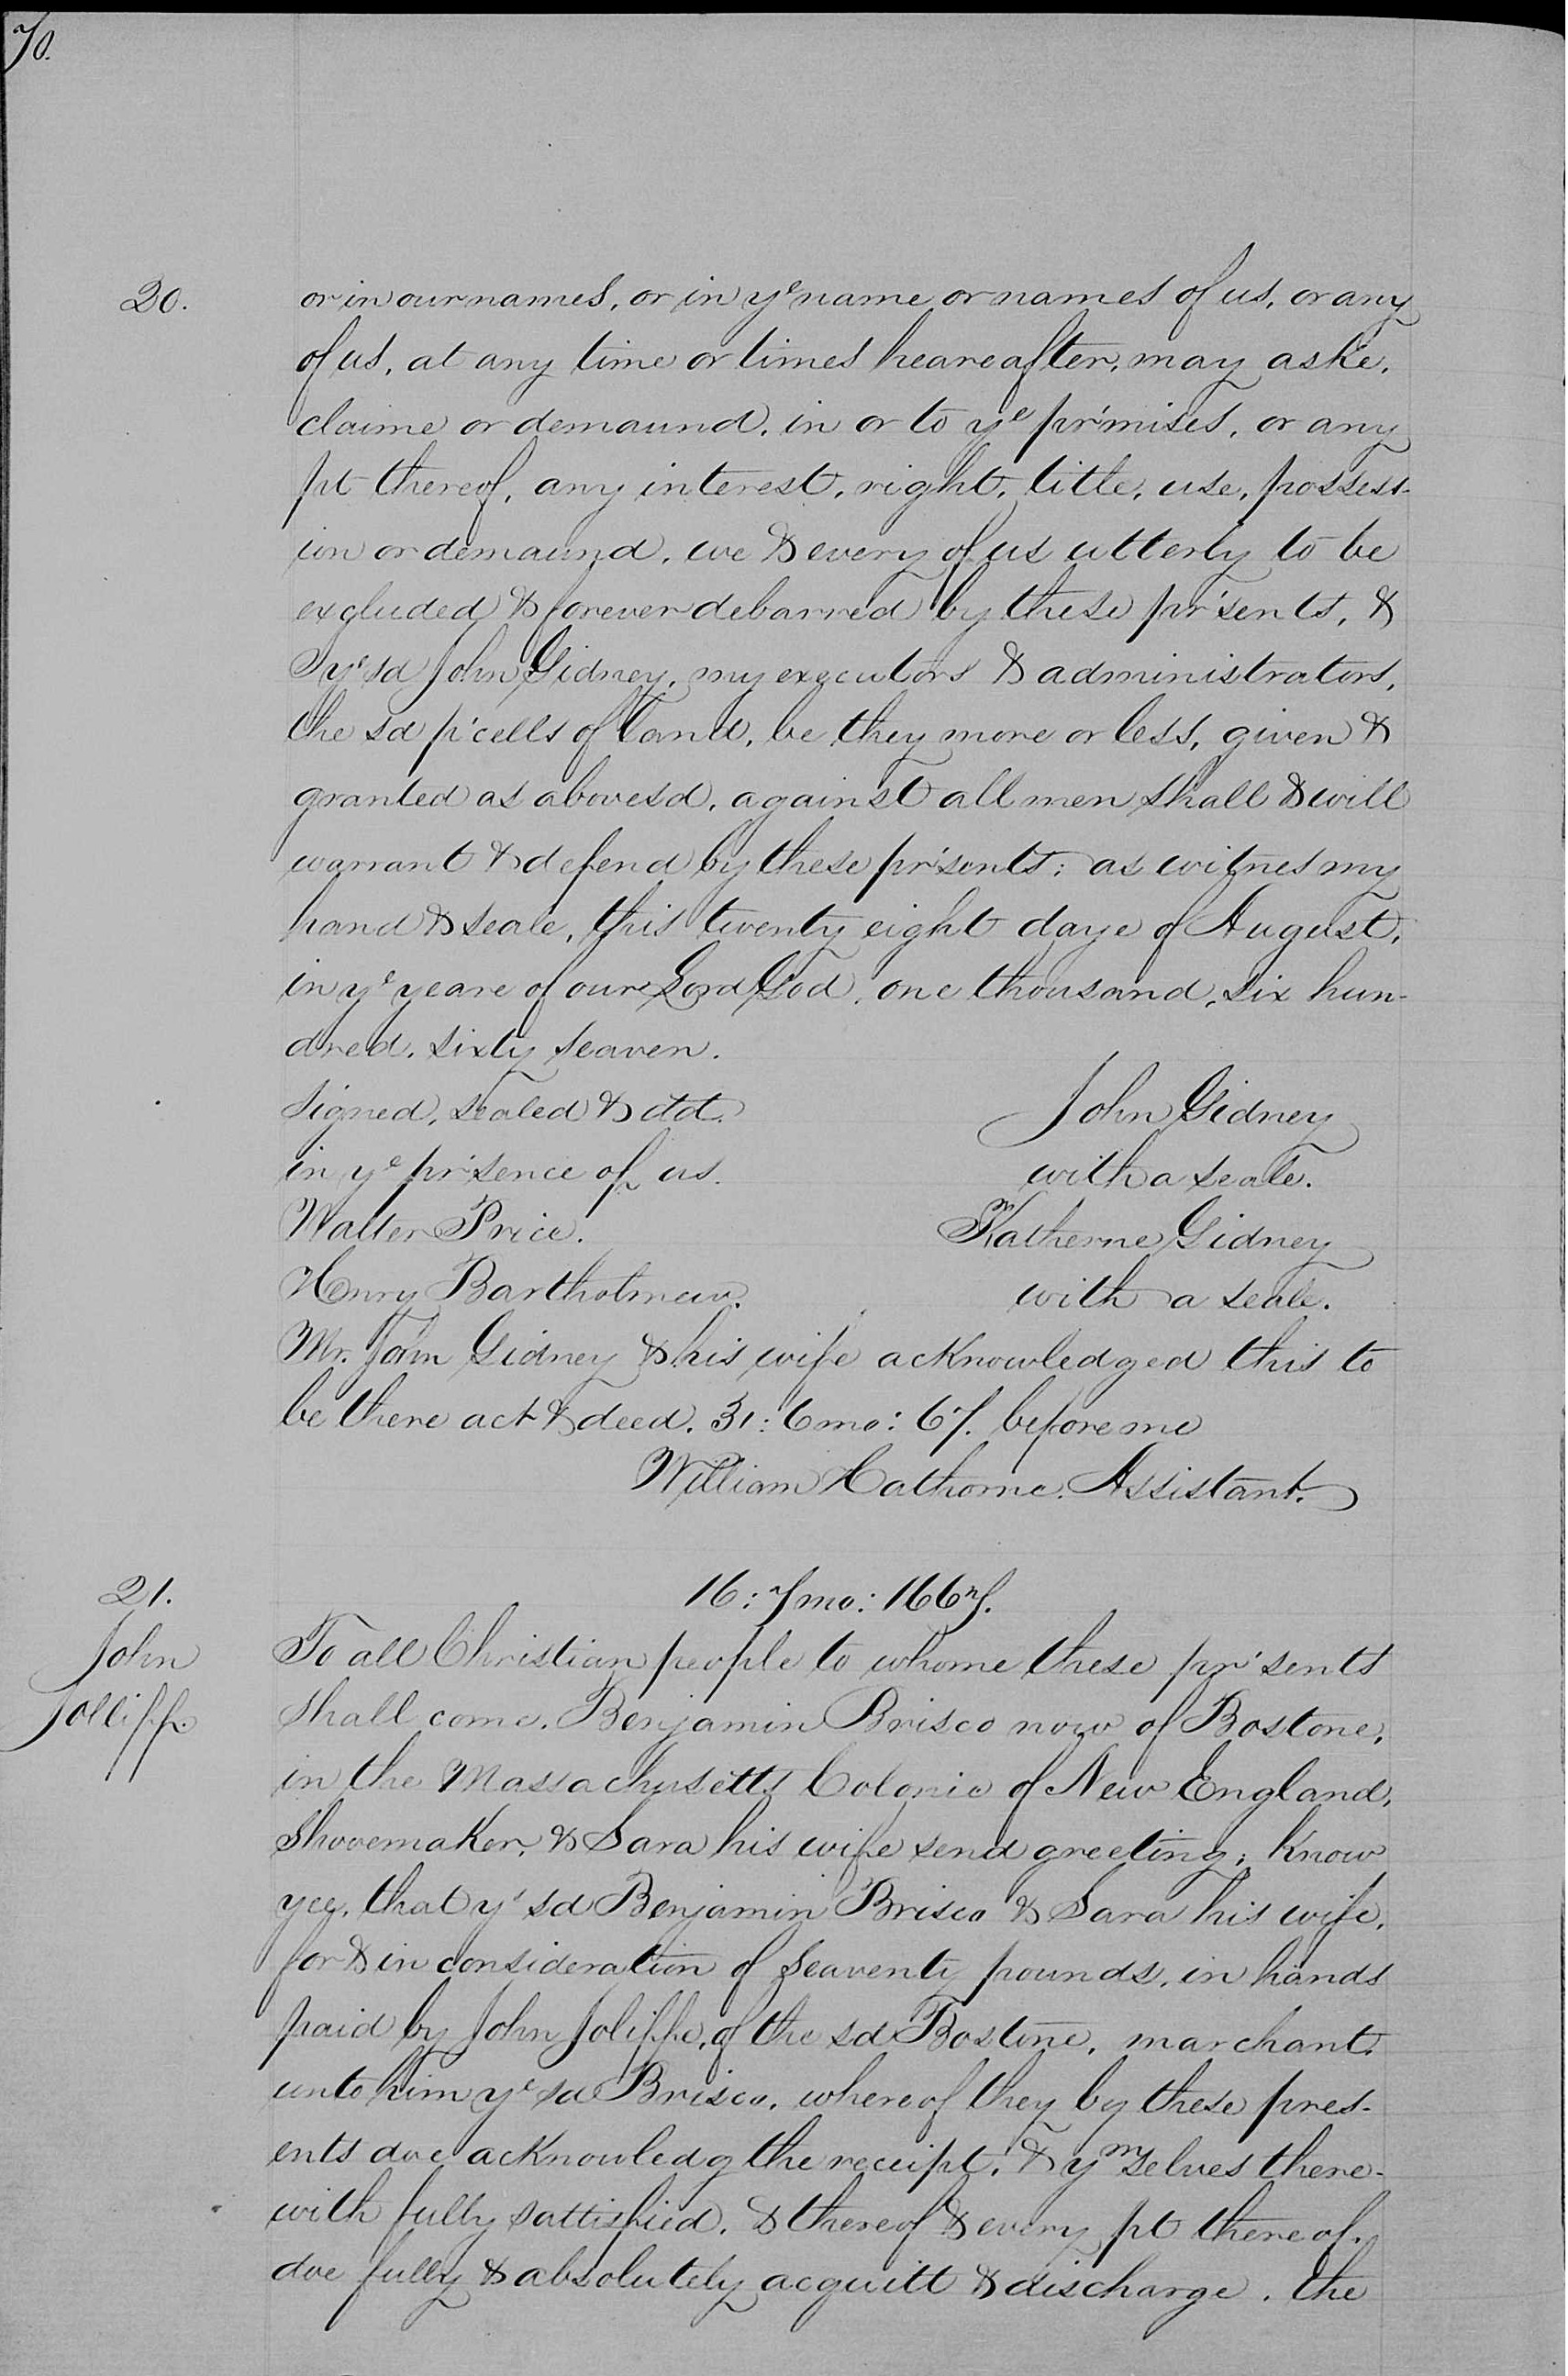 70.
20.
or in our names, or in yᵉ name or names of us, or any
of us, at any time or times heareafter, may aske,
claime or demaund, in or to yᵉ pr'mises, or any
pt thereof, any interest, right, title, use, possess-
ion or demaund, we & every of us utterly to be
excluded & forever debarred by these pr'sents, &
I yᵉ sd John Gidney, my executors & administrators,
the sd p'cells of land, be they more or less, given &
granted as abovesd, against all men shall & will
warrant & defend by these pr'sents; as witnes my
hand & seale, this twenty eight daye of August,
in yᵉ yeare of our Lord God, one thousand, six hun-
dred, sixty seaven.
Signed, sealed & dd. John Gidney
in yᵉ pr'sence of us. with a seale.
Walter Price. Katherne Gidney
Henry Bartholmew. with a seale.
Mr. John Gidney & his wife acknowledged this to
be there act & deed. 31: 6 mo: 67. before me
William Hathorne. Assistant.
21.
16: 7 mo: 1667.
John
Jolliff.
To all Christian people to whome these pr'sents
shall come. Benjamin Brisco now of Bostone,
in the Massachusetts Colonie of New England,
Shooemaker, & Sara his wife send greeting; Know
yee, that yᵉ sd Benjamin Brisco & Sara his wife,
for & in consideration of seaventy pounds, in hands
paid by John Joliffe, of the sd Bostone, marchant,
unto him yᵉ sd Brisco, whereof they by these pres-
ents doe acknowledg the receipt, & yᵐselves there-
with fully sattisfied, & thereof & every pt thereof,
doe fully & absolutely acquitt & discharge, the